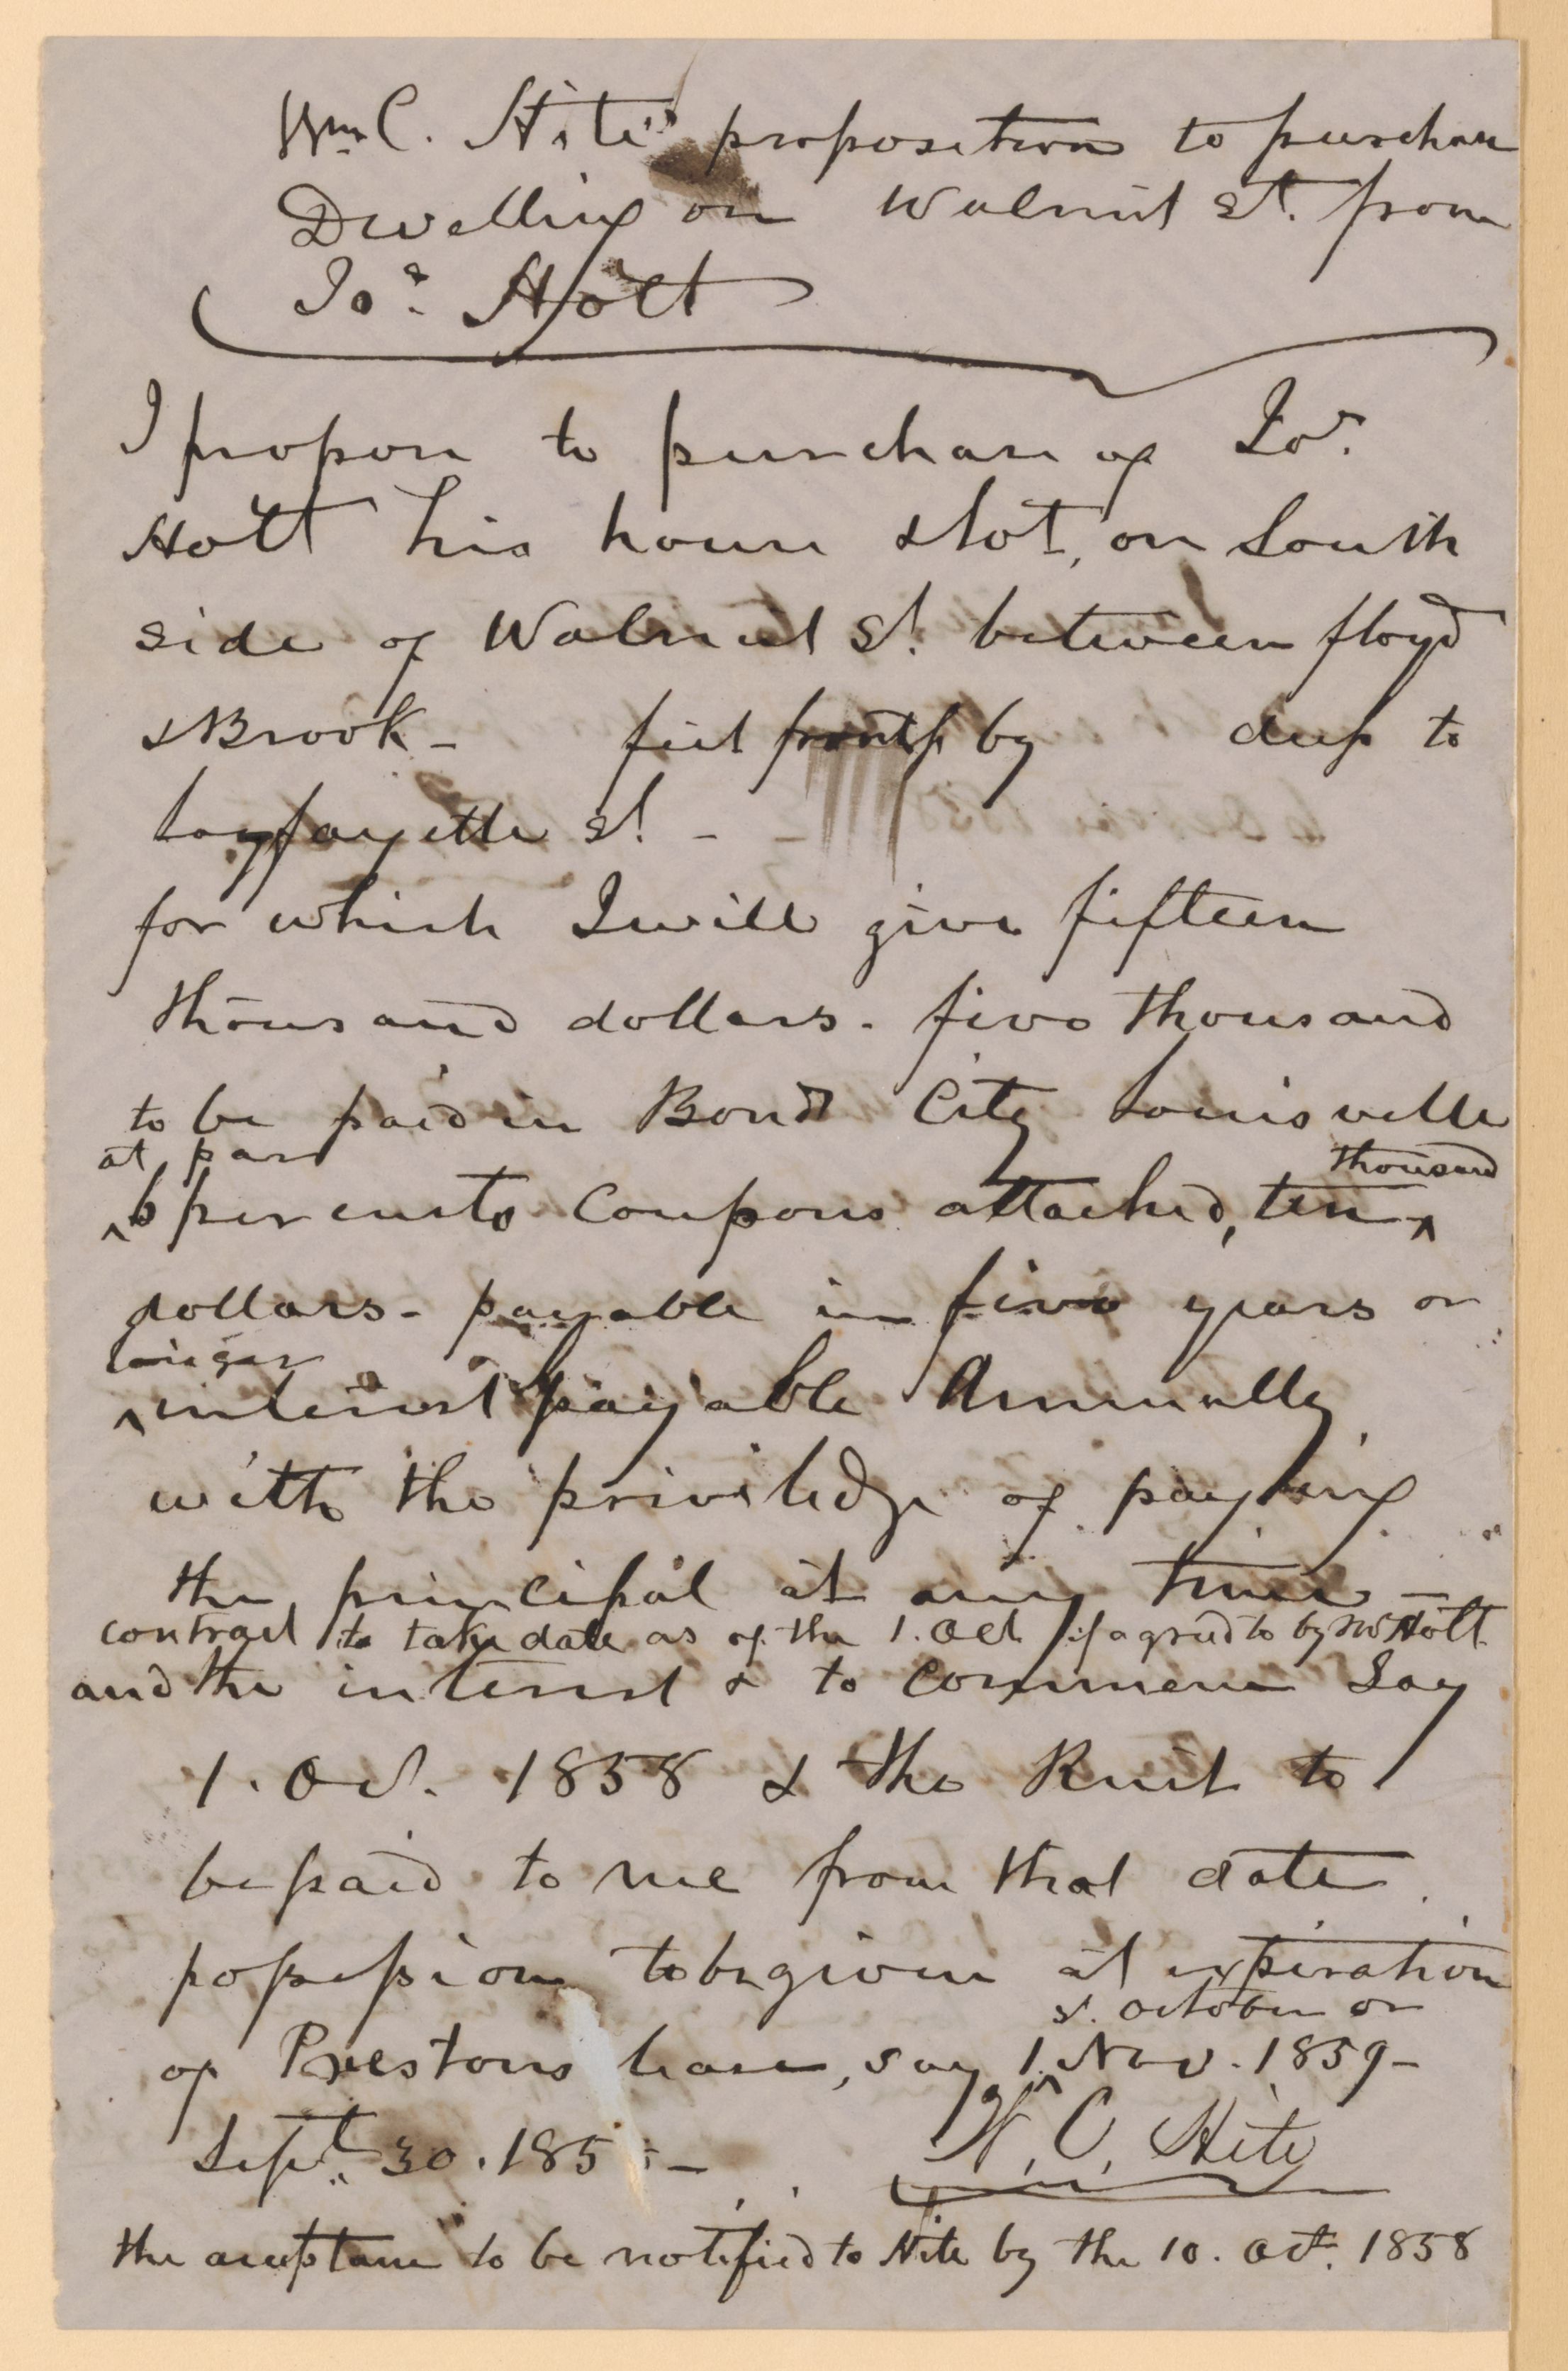 Wm C. Hite's proposition to purchase
Dwelling on Walnut St. from
Jos. Holt
I propose to purchase of Jos.
Holt his house & lot, on South
side of Walnut St. between floyd
& Brook - feet front by deep to
Layfayette St. -
for which I will give fifteen
thousand dollars - five thousand
to be paid in Bond City Louisville
at par
^ 6 per cents Coupons attached, ten ^ thousand
dollars - payable in five years or
longer
^ interest payable Annually
with the priviledge of paying
the principal at any time -
contract to take date as of the 1. Oct if agreed to by Mr Holt
and the interest & to commence Say
1. Oct. 1858 & the Rent to
be paid to me from that date.
possession to be given at expiration
October or
of Prestons lease, say 1. ^ Nov. 1859 -
Sept. 30. 185 -
W. C. Hite
the acceptance to be notified to Hite by the 10. Oct. 1858